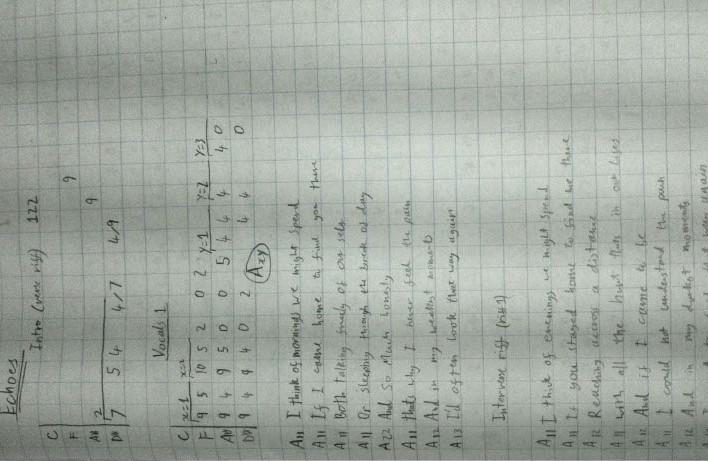 Echoes
Intro (verse riff) 122
C
F 9
A# 2 9
D# 7 5 4 4/7 4/9
Vocals 1
C x=1 x=2 y=1 y=2 y=3
F 9 5 10 5 2 0 2
A# 4 9 5 0 0 5 4 4 4 4 0
D# 9 4 9 4 0 2 4 4 0
Axy
A11 I think of mornings we might spend
A11 If I came home to find you there
A11 Both talking freely of our selfs
A11 Or sleeping through the break of day
A22 And so much honesty
A11 thats why I never feel the pain
A12 And in my weakest moments
A13 I'd often look that way again
Interverse riff (riff 1)
A11 I think of evenings we might spend
A11 If you stayed home to find me there
A12 Reaching across a distance
A11 With all the hurt thats in our lifes
A12 And if I came to be
A11 I could not understand the pain
A12 And in my darkest moments
again